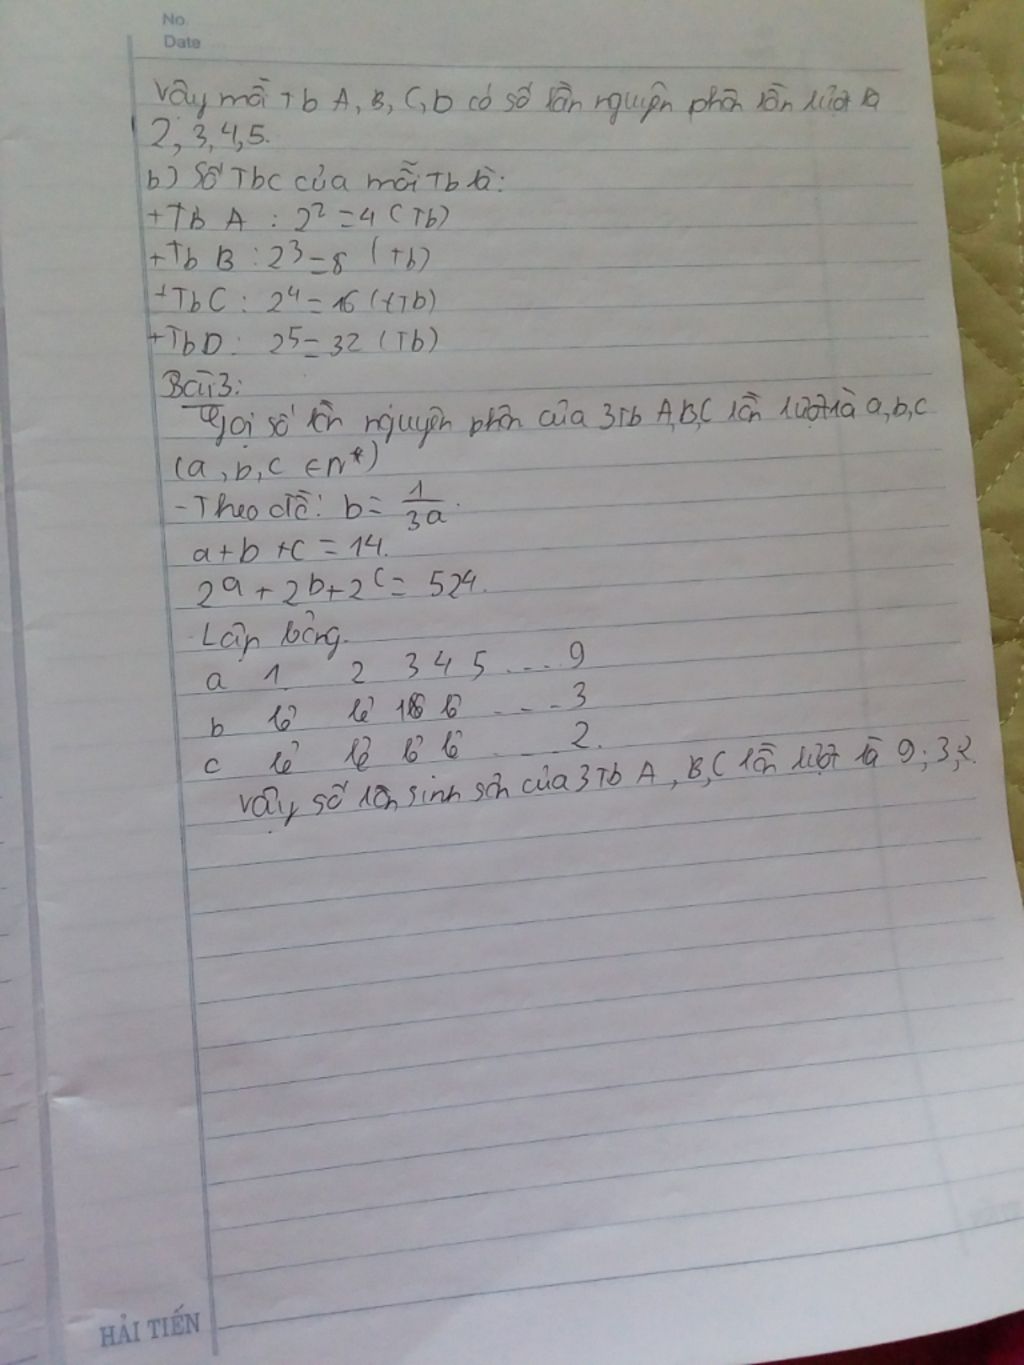 No.
Date
Vậy mỗi Tb A, B, C, D có số lần nguyên phân lần lượt là
2, 3, 4, 5.
b) Số Tbc của mỗi Tb là:
+ Tb A : 2² = 4 (Tb)
+ Tb B : 2³ = 8 (Tb)
+ Tb C : 2⁴ = 16 (Tb)
+ Tb D : 2⁵ = 32 (Tb)
Bài 3:
Gọi số lần nguyên phân của 3 Tb A, B, C lần lượt là a, b, c
(a, b, c ∈ N*)
- Theo đề: b = 1/3a.
a + b + c = 14.
2ᵃ + 2ᵇ + 2ᶜ = 524.
Lập bảng.
a 1 2 3 4 5 .... 9
b lẻ lẻ 1 lẻ .... 3
c lẻ lẻ lẻ lẻ .... 2.
Vậy số lần sinh sản của 3 Tb A, B, C lần lượt là 9; 3; 2.
HẢI TIẾN